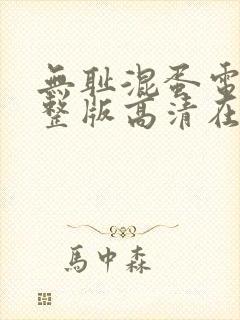 無耻混蛋電
整版高清在
馬中森